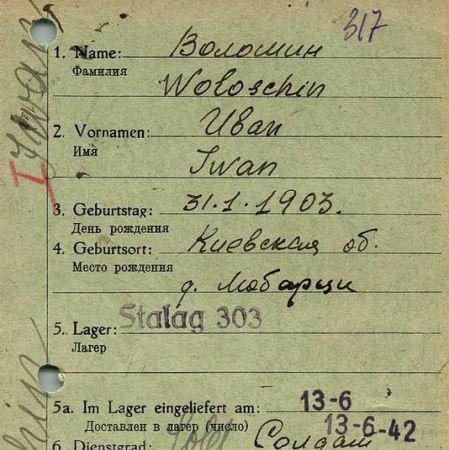 317
1. Name: Волошин
Фамилия
Woloschin
2. Vornamen: Иван
Имя
Iwan
3. Geburtstag: 31.1.1903.
День рождения
4. Geburtsort: Киевская об.
Место рождения
д.
5. Lager: Stalag 303
Лагерь
5a. Im Lager eingeliefert am: 13-6
Доставлен в лагерь (число) 13-6-42
6. Dienstgrad: Солдат
Iwan